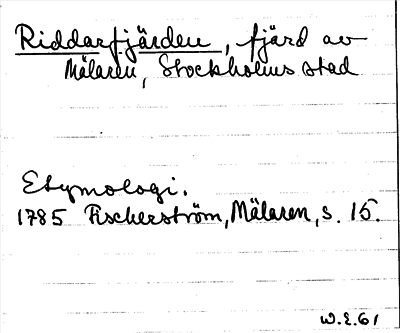 Riddarfjärden, fjärd av
Mälaren, Stockholms stad
Etymologi.
1785 Fischerström, Mälaren, s. 15.
W.E.61